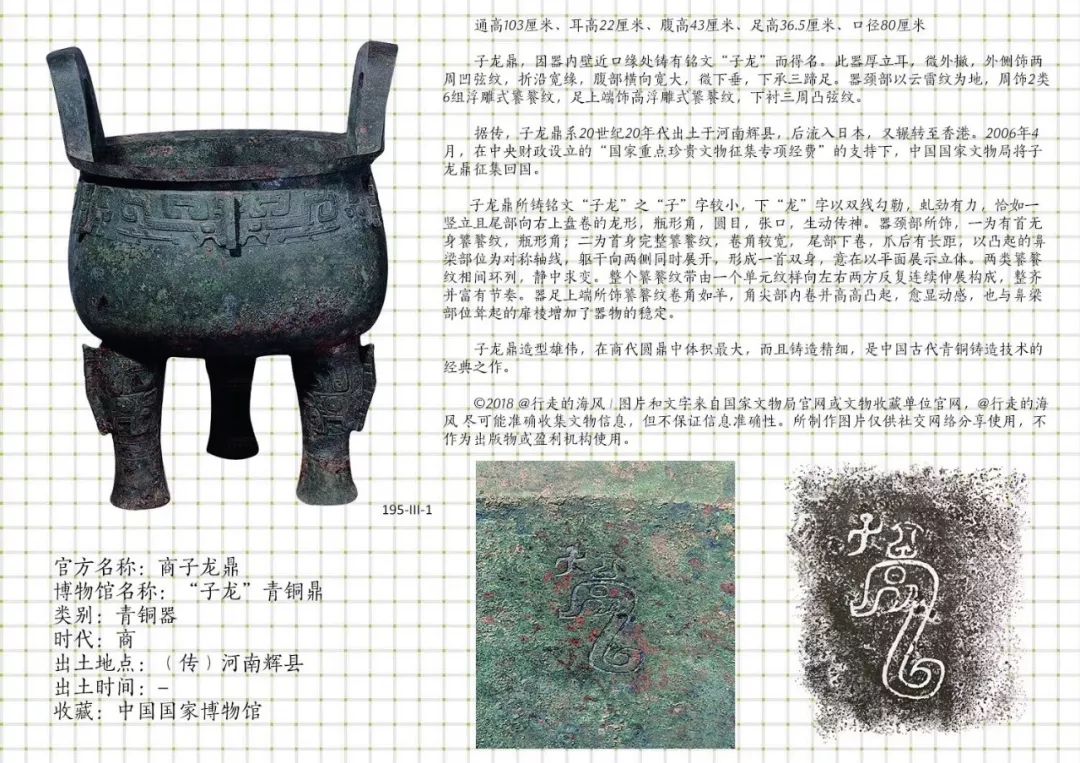 通高103厘米、耳高22厘米、腹高43厘米、足高36.5厘米、口径80厘米
子龙鼎，因器内壁近口缘处铸有铭文“子龙”而得名。此器厚立耳，微外撇，外侧饰两
周凹弦纹，折沿宽缘，腹部横向宽大，微下垂，下承三蹄足。器颈部以云雷纹为地，周饰2类
6组浮雕式饕餮纹，足上端饰高浮雕式饕餮纹，下衬三周凸弦纹。
据传，子龙鼎系20世纪20年代出土于河南辉县，后流入日本，又辗转至香港。2006年4
月，在中央财政设立的“国家重点珍贵文物征集专项经费”的支持下，中国国家文物局将子
龙鼎征集回国。
子龙鼎所铸铭文“子龙”之“子”字较小，下“龙”字以双线勾勒，虬劲有力，恰如一
竖立且尾部向右上盘卷的龙形，瓶形角，圆目，张口，生动传神。器颈部所饰，一为有首无
身饕餮纹，瓶形角；二为首身完整饕餮纹，卷角较宽，尾部下卷，爪后有长距，以凸起的鼻
梁部位为对称轴线，躯干向两侧同时展开，形成一首双身，意在以平面展示立体。两类饕餮
纹相间环列，静中求变。整个饕餮纹带由一个单元纹样向左右两方反复连续伸展构成，整齐
并富有节奏。器足上端所饰饕餮纹卷角如羊，角尖部内卷并高高凸起，愈显动感，也与鼻梁
部位耸起的扉棱增加了器物的稳定。
子龙鼎造型雄伟，在商代圆鼎中体积最大，而且铸造精细，是中国古代青铜铸造技术的
经典之作。
©2018 @行走的海风 | 图片和文字来自国家文物局官网或文物收藏单位官网，@行走的海
风 尽可能准确收集文物信息，但不保证信息准确性。所制作图片仅供社交网络分享使用，不
作为出版物或盈利机构使用。
195-III-1
官方名称：商子龙鼎
博物馆名称：“子龙”青铜鼎
类别：青铜器
时代：商
出土地点：（传）河南辉县
出土时间：–
收藏：中国国家博物馆